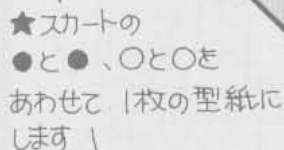 ★スカートの
●と●、○と○を
あわせて 1枚の型紙に
します